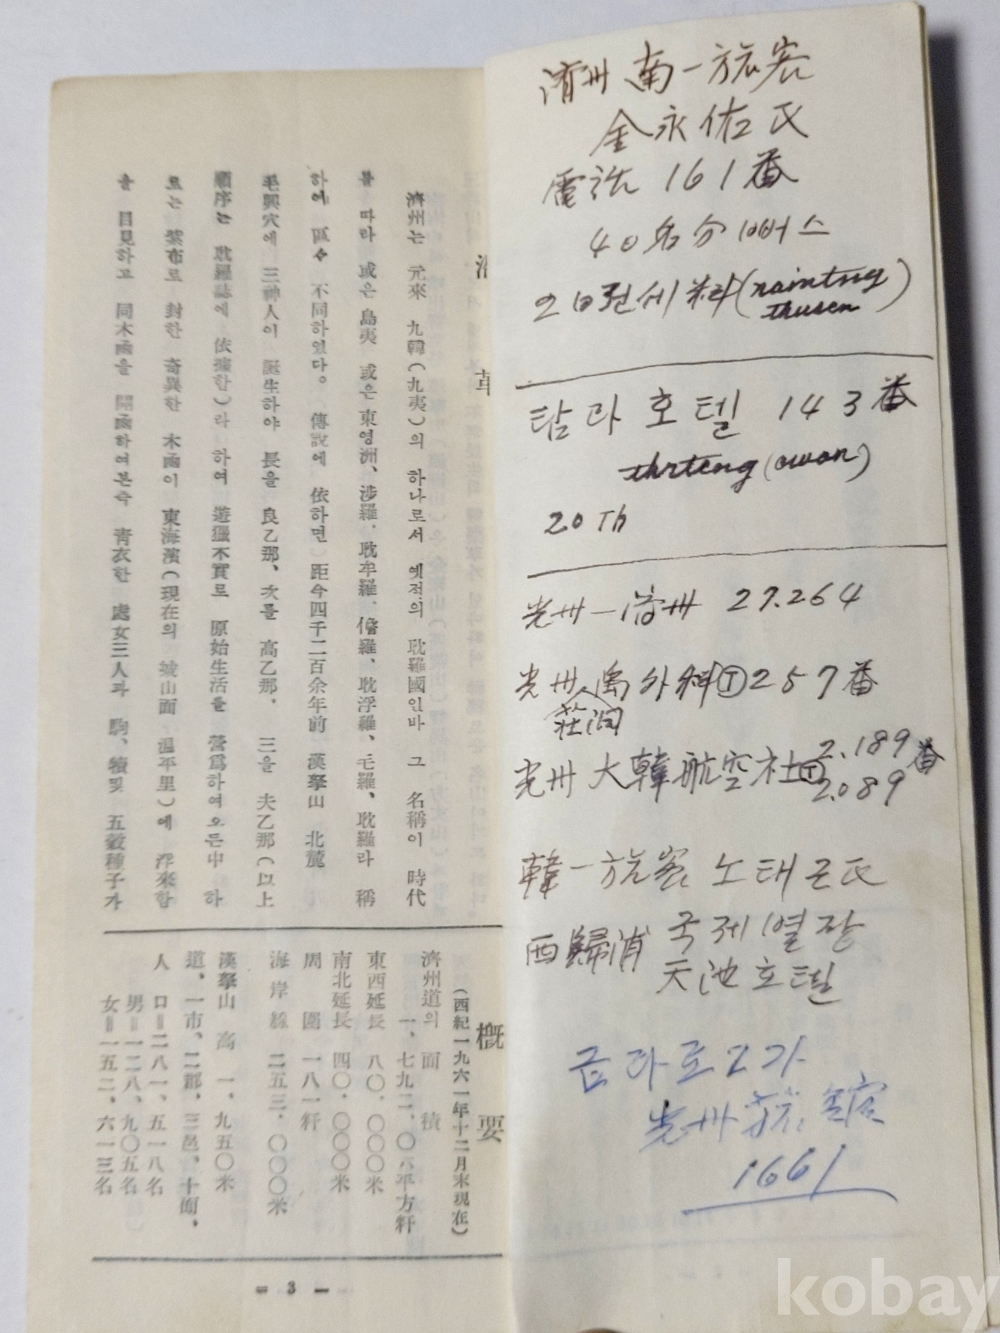 沿革
濟州는 元來 九韓(九夷)의 하나로서 옛적의 耽羅國인바 그 名稱이 時代
를 따라 或은 島夷 或은 東瀛洲、涉羅、耽牟羅、儋羅、耽浮羅、乇羅、耽羅라 稱
하여 區々 不同하였다。傳說에 依하면 距今四千二百余年前 漢拏山 北麓
毛興穴에 三神人이 誕生하야 長을 良乙那、次를 高乙那、三을 夫乙那(以上
順序는 耽羅誌에 依據함)라 하여 遊獵不實로 原始生活을 營爲하여오든中 하
로는 紫布로 封한 奇異한 木函이 東海濱(現在의 城山面 溫平里)에 浮來함
을 目見하고 同木函을 開函하여본즉 靑衣한 處女三人과 駒、犢및 五穀種子가
槪要
(西紀一九六一年十二月末現在)
濟州道의 面積
一、七九二、〇六平方粁
東西延長 八〇、〇〇〇米
南北延長 四〇、〇〇〇米
周圍 一八一粁
海岸線 二五三、〇〇〇米
漢拏山高 一、九五〇米
道、一市、二郡、三邑、十面、
人口=二八一、五一八名
男=一二八、九〇五名
女=一五二、六一三名
— 3 —
濟州 南一旅客
金永佑氏
電話 161番
40名分 뻐스
2日전세料(
)
탐라호텔 143番
20Th
光州—濟州 27.264
光州 外科 T 257番
光州 大韓航空社 T 2.189番
2.089
韓一旅客 노태근氏
西歸浦 국제열장
天池호텔
금라로2가
光州
1661
kobay